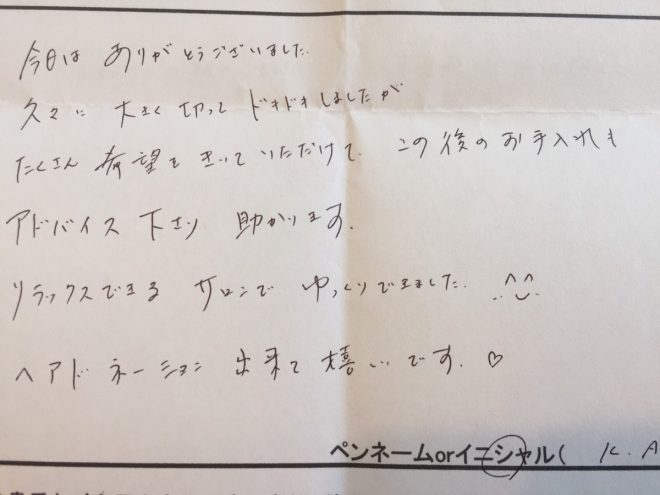 今日は ありがとうございました.
久々に 大きく 切って ドキドキしましたが
たくさん 希望を きいて いただけて. この後のお手入れも
アドバイス 下さり 助かります.
リラックスできる サロンで ゆっくりできました. ^^
ヘアドネーション 出来て 嬉しいです. ♡
ペンネームorイニシャル( K. A